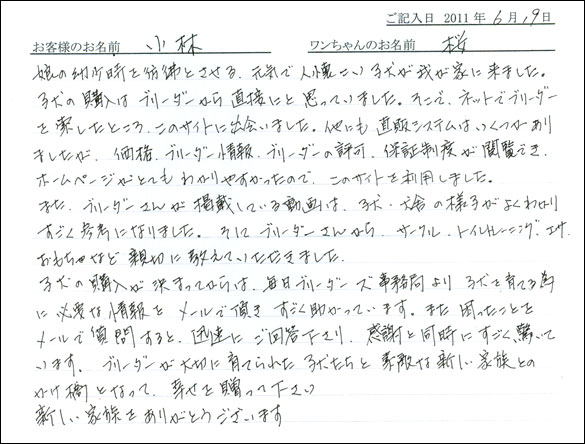 ご記入日 2011年6月19日
お客様のお名前 小林 ワンちゃんのお名前 桜
娘の幼少時を彷彿とさせる、元気で人懐こい子犬が我が家に来ました。
子犬の購入はブリーダーから直接にと思っていました。そこで、ネットでブリーダー
を探したところ、このサイトに出会いました。他にも直販システムはいくつかあり
ましたが、価格、ブリーダー情報、ブリーダーの許可、保証制度が閲覧でき、
ホームページがとてもわかりやすかったので、このサイトを利用しました。
また、ブリーダーさんが掲載している動画は、子犬・犬舎の様子がよくわかり
すごく参考になりました。そしてブリーダーさんから、サークル、トイレトレーニング、エサ、
おもちゃなど親切に教えていただきました。
子犬の購入が決まってからは、毎日ブリーダーズ事務局より子犬を育てる為
に必要な情報をメールで頂きすごく助かっています。また困ったことを
メールで質問すると、迅速にご回答下さり、感謝と同時にすごく驚いて
います。ブリーダーが大切に育てられた子犬たちと素敵な新しい家族との
かけ橋となって、幸せを贈って下さい
新しい家族をありがとうございます